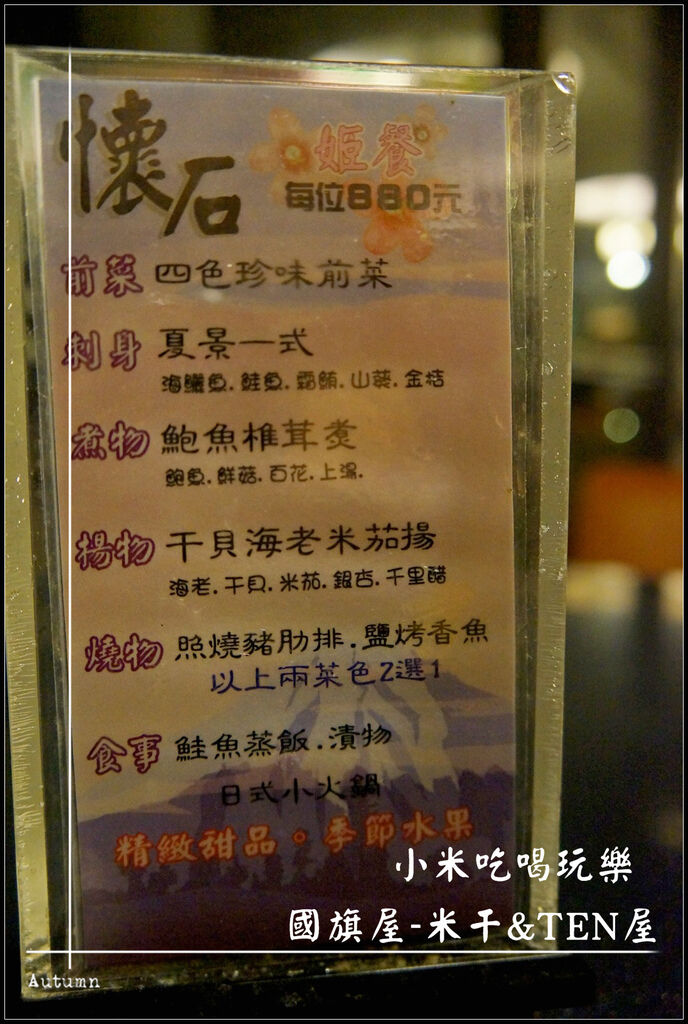 懷石
姬餐
每位880元
前菜 四色珍味前菜
刺身 夏景一式
海鱺魚.鮭魚.霜鮪.山葵.金桔
煮物 鮑魚椎茸煮
鮑魚.鮮菇.百花.上湯.
揚物 干貝海老米茄揚
海老.干貝.米茄.銀杏.千里醋
燒物 照燒豬肋排.鹽烤香魚
以上兩菜色2選1
食事 鮭魚蒸飯.漬物
日式小火鍋
精緻甜品。季節水果
小米吃喝玩樂
國旗屋-米干&TEN屋
Autumn